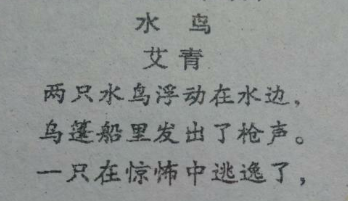 水鸟
艾青
两只水鸟浮动在水边，
乌篷船里发出了枪声。
一只在惊怖中逃逸了，